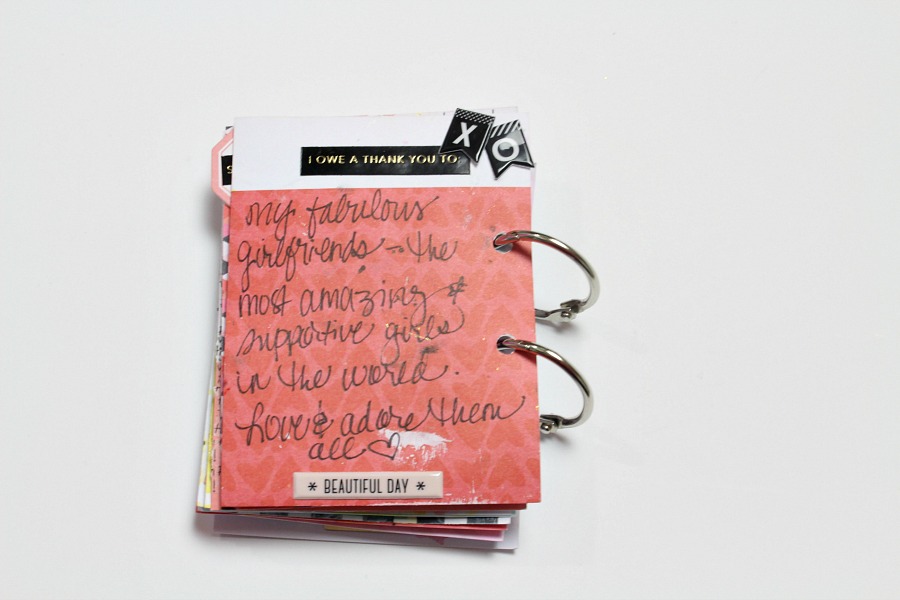 X O
I OWE A THANK YOU TO:
my fabulous
girlfriends - the
most amazing &
supportive girls
in the world.
Love & adore them
all ♡
* BEAUTIFUL DAY *